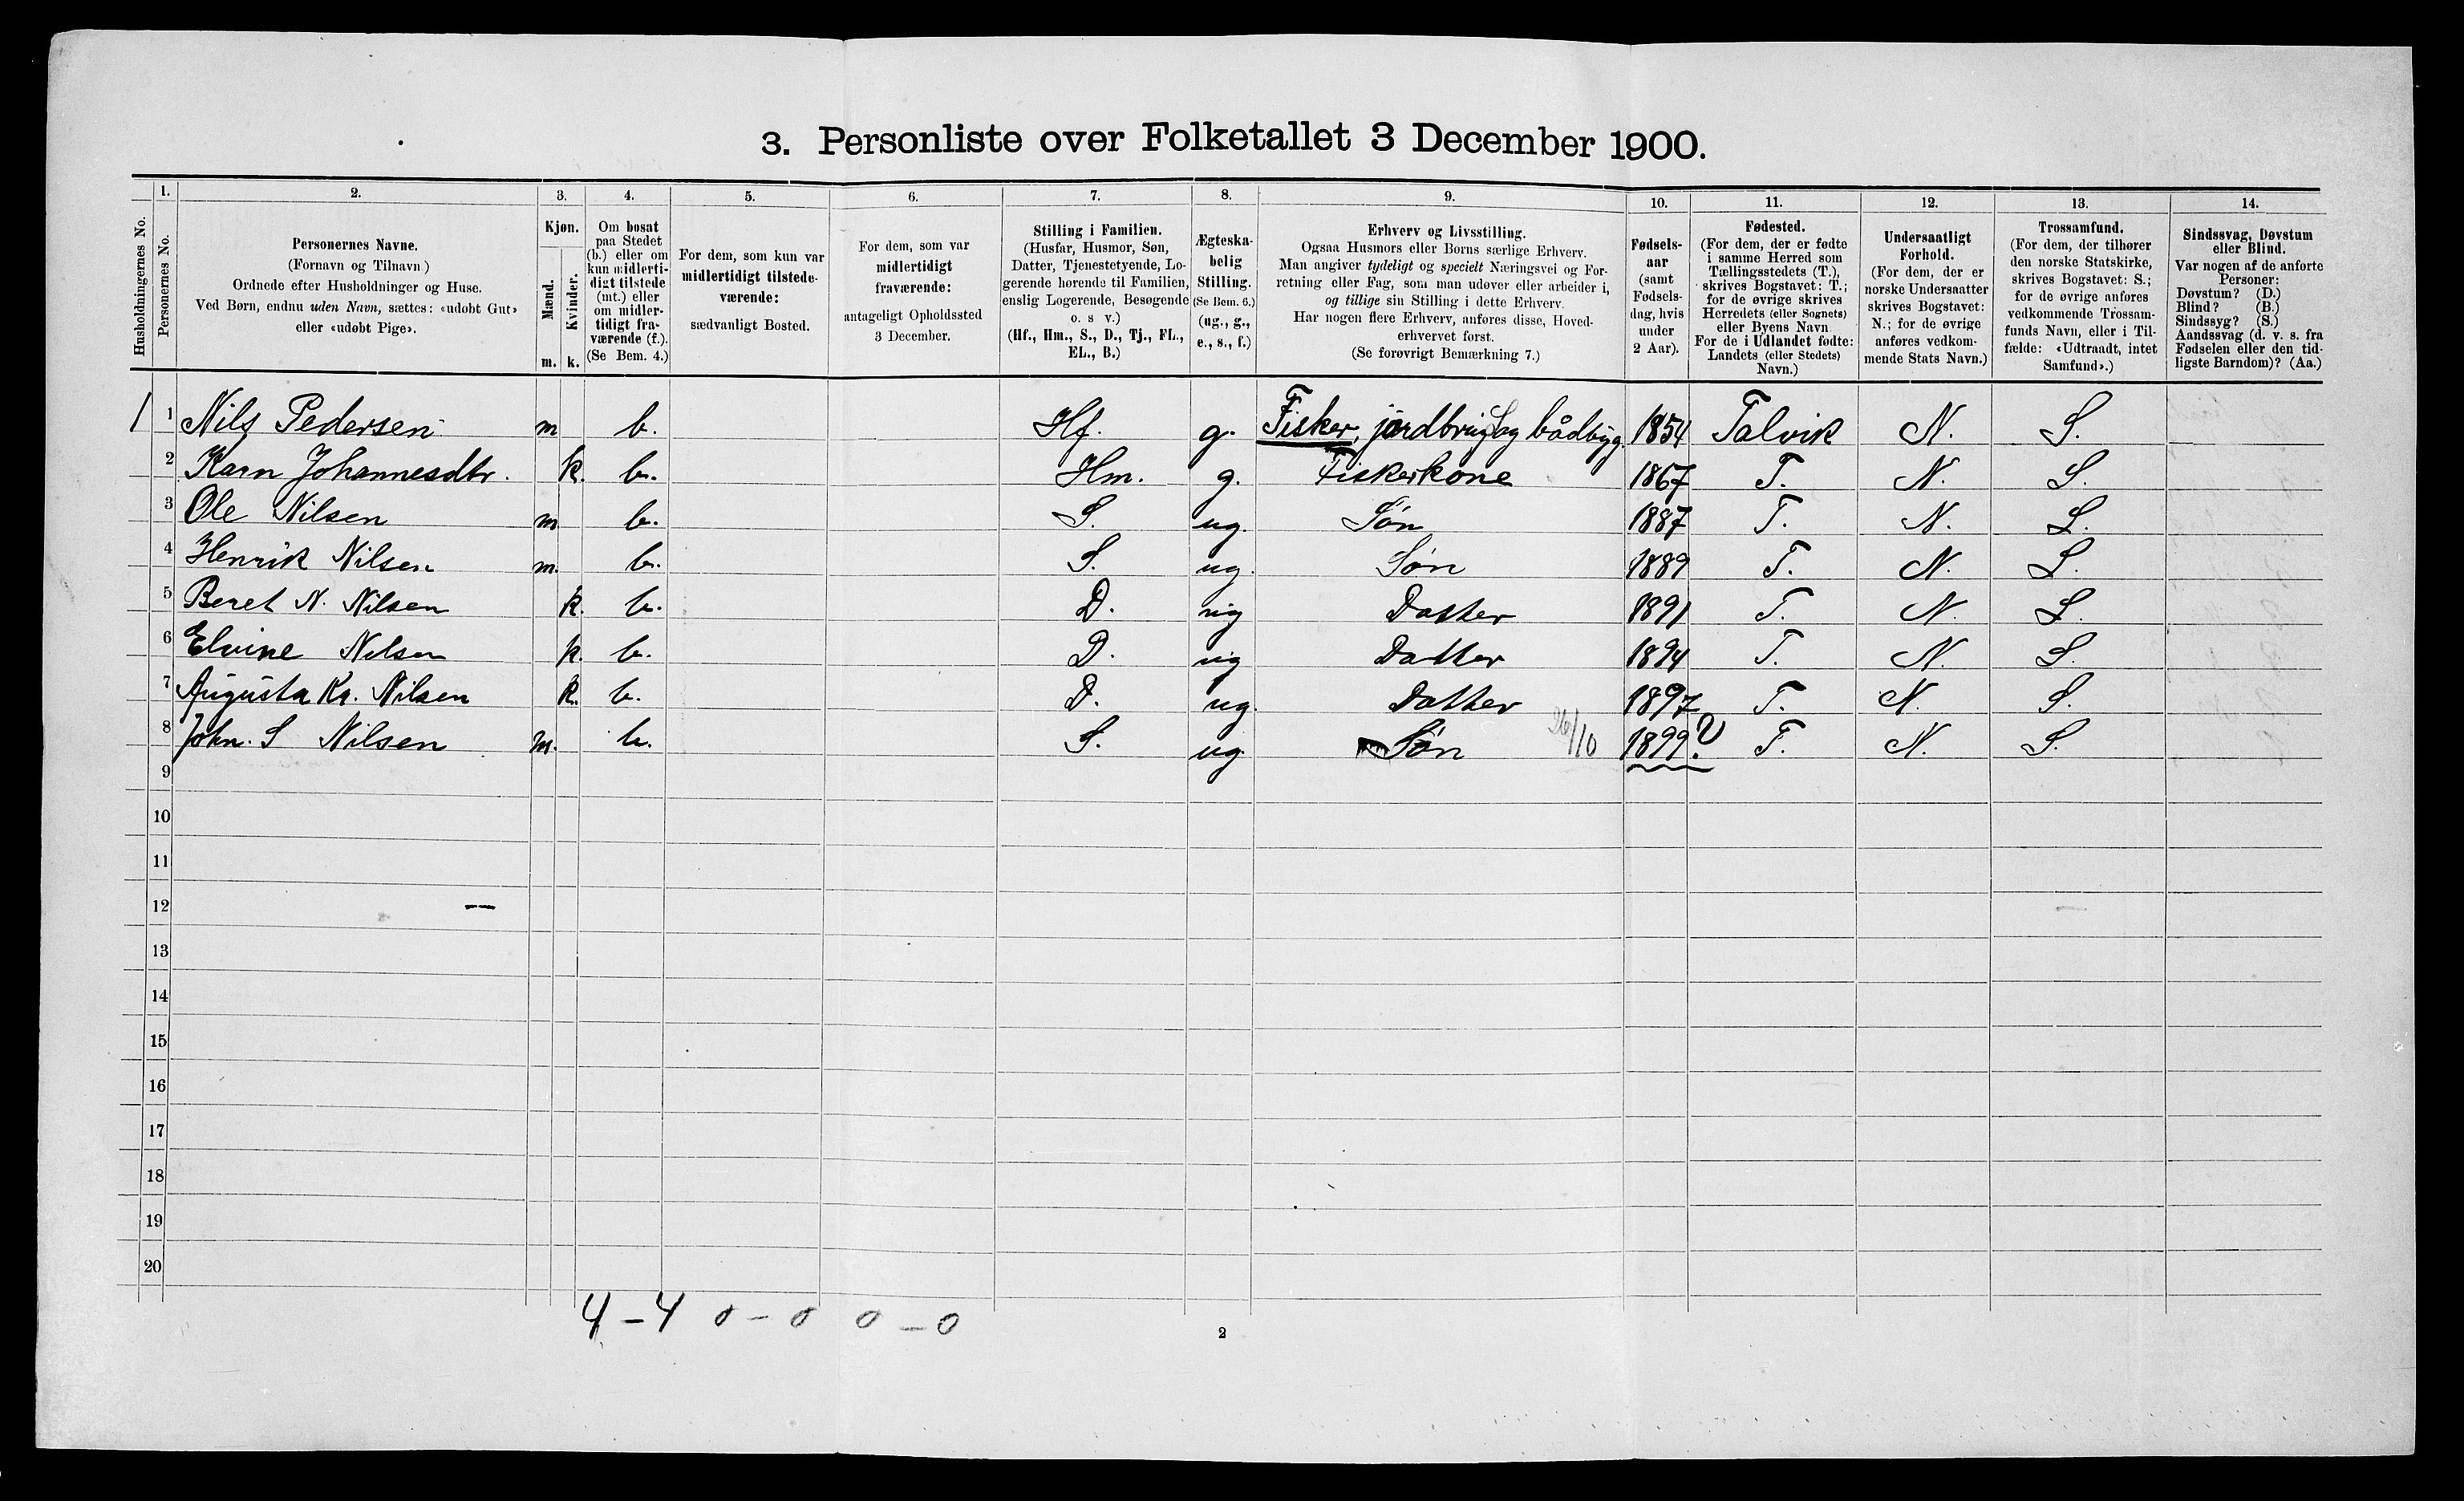 3. Personliste over Folketallet 3 December 1900.
1. 2. 3. 4. 5. 6. 7. 8. 9. 10. 11. 12. 13. 14.
Husholdningernes No.
Personernes No.
Personernes Navne.
(Fornavn og Tilnavn)
Ordnede efter Husholdninger og Huse.
Ved Børn, endnu uden Navn, sættes: «udøbt Gut»
eller «udøbt Pige».
Kjøn.
Mænd.
Kvinder.
m. k.
Om bosat
paa Stedet
(b.) eller om
kun midlerti-
digt tilstede
(mt.) eller
om midler-
tidigt fra-
værende (f.).
(Se Bem. 4.)
For dem, som kun var
midlertidigt tilstede-
værende:
sædvanligt Bosted.
For dem, som var
midlertidigt
fraværende:
antageligt Opholdssted
3 December.
Stilling i Familien.
(Husfar, Husmor, Søn,
Datter, Tjenestetyende, Lo-
gerende hørende til Familien,
enslig Logerende, Besøgende
o. s v.)
(Hf., Hm., S., D., Tj., FL.,
EL., B.)
Ægteska-
belig
Stilling.
(Se Bem. 6.)
(ug., g.,
e., s., f.)
Erhverv og Livsstilling.
Ogsaa Husmors eller Børns særlige Erhverv.
Man angiver tydeligt og specielt Næringsvei og For-
retning eller Fag, som man udøver eller arbeider i,
og tillige sin Stilling i dette Erhverv.
Har nogen flere Erhverv, anføres disse, Hoved-
erhvervet først.
(Se forøvrigt Bemærkning 7.)
Fødsels-
aar
(samt
Fødsels-
dag, hvis
under
2 Aar).
Fødested.
(For dem, der er fødte
i samme Herred som
Tællingsstedets (T.),
skrives Bogstavet: T.;
for de øvrige skrives
Herredets (eller Sognets)
eller Byens Navn
For de i Udlandet fødte:
Landets (eller Stedets)
Navn.)
Undersaatligt
Forhold.
(For dem, der er
norske Undersaatter
skrives Bogstavet:
N.; for de øvrige
anføres vedkom-
mende Stats Navn.)
Trossamfund.
(For dem, der tilhører
den norske Statskirke,
skrives Bogstavet: S.;
for de øvrige anføres
vedkommende Trossam-
funds Navn, eller i Til-
fælde: «Udtraadt, intet
Samfund».)
Sindssvag, Døvstum
eller Blind.
Var nogen af de anførte
Personer:
Døvstum? (D.)
Blind? (B.)
Sindssyg? (S.)
Aandssvag (d. v. s. fra
Fødselen eller den tid-
ligste Barndom)? (Aa.)
1 1 Nils Pedersen m b. Hf. g. Fisker, jordbrug og bådbyg. 1854 Talvik N. S.
2 Karn Johannesdtr. k. b. Hm. g. Fiskerkone 1867 T. N. S.
3 Ole Nilsen m b. S. ug. Søn 1887 T. N. S.
4 Henrik Nilsen m. b. S. ug. Søn 1889 T. N. S.
5 Beret N. Nilsen k. b. D. ug Datter 1891 T. N. S.
6 Elvine Nilsen k. b. D. ug Datter 1894 T. N. S.
7 Augusta Kr. Nilsen k. b. D. ug. Datter 1897 T. N. S.
8 John. S Nilsen m. b. S. ug Søn 26/10 1899? T. N. S.
9
10
11
12
13
14
15
16
17
18
19
20
4 – 4 0 – 0 0 – 0
2